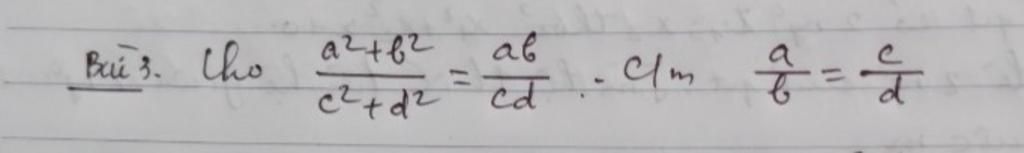 Bài 3. Cho \frac{a^2+b^2}{c^2+d^2} = \frac{ab}{cd}. C/m \frac{a}{b} = \frac{c}{d}